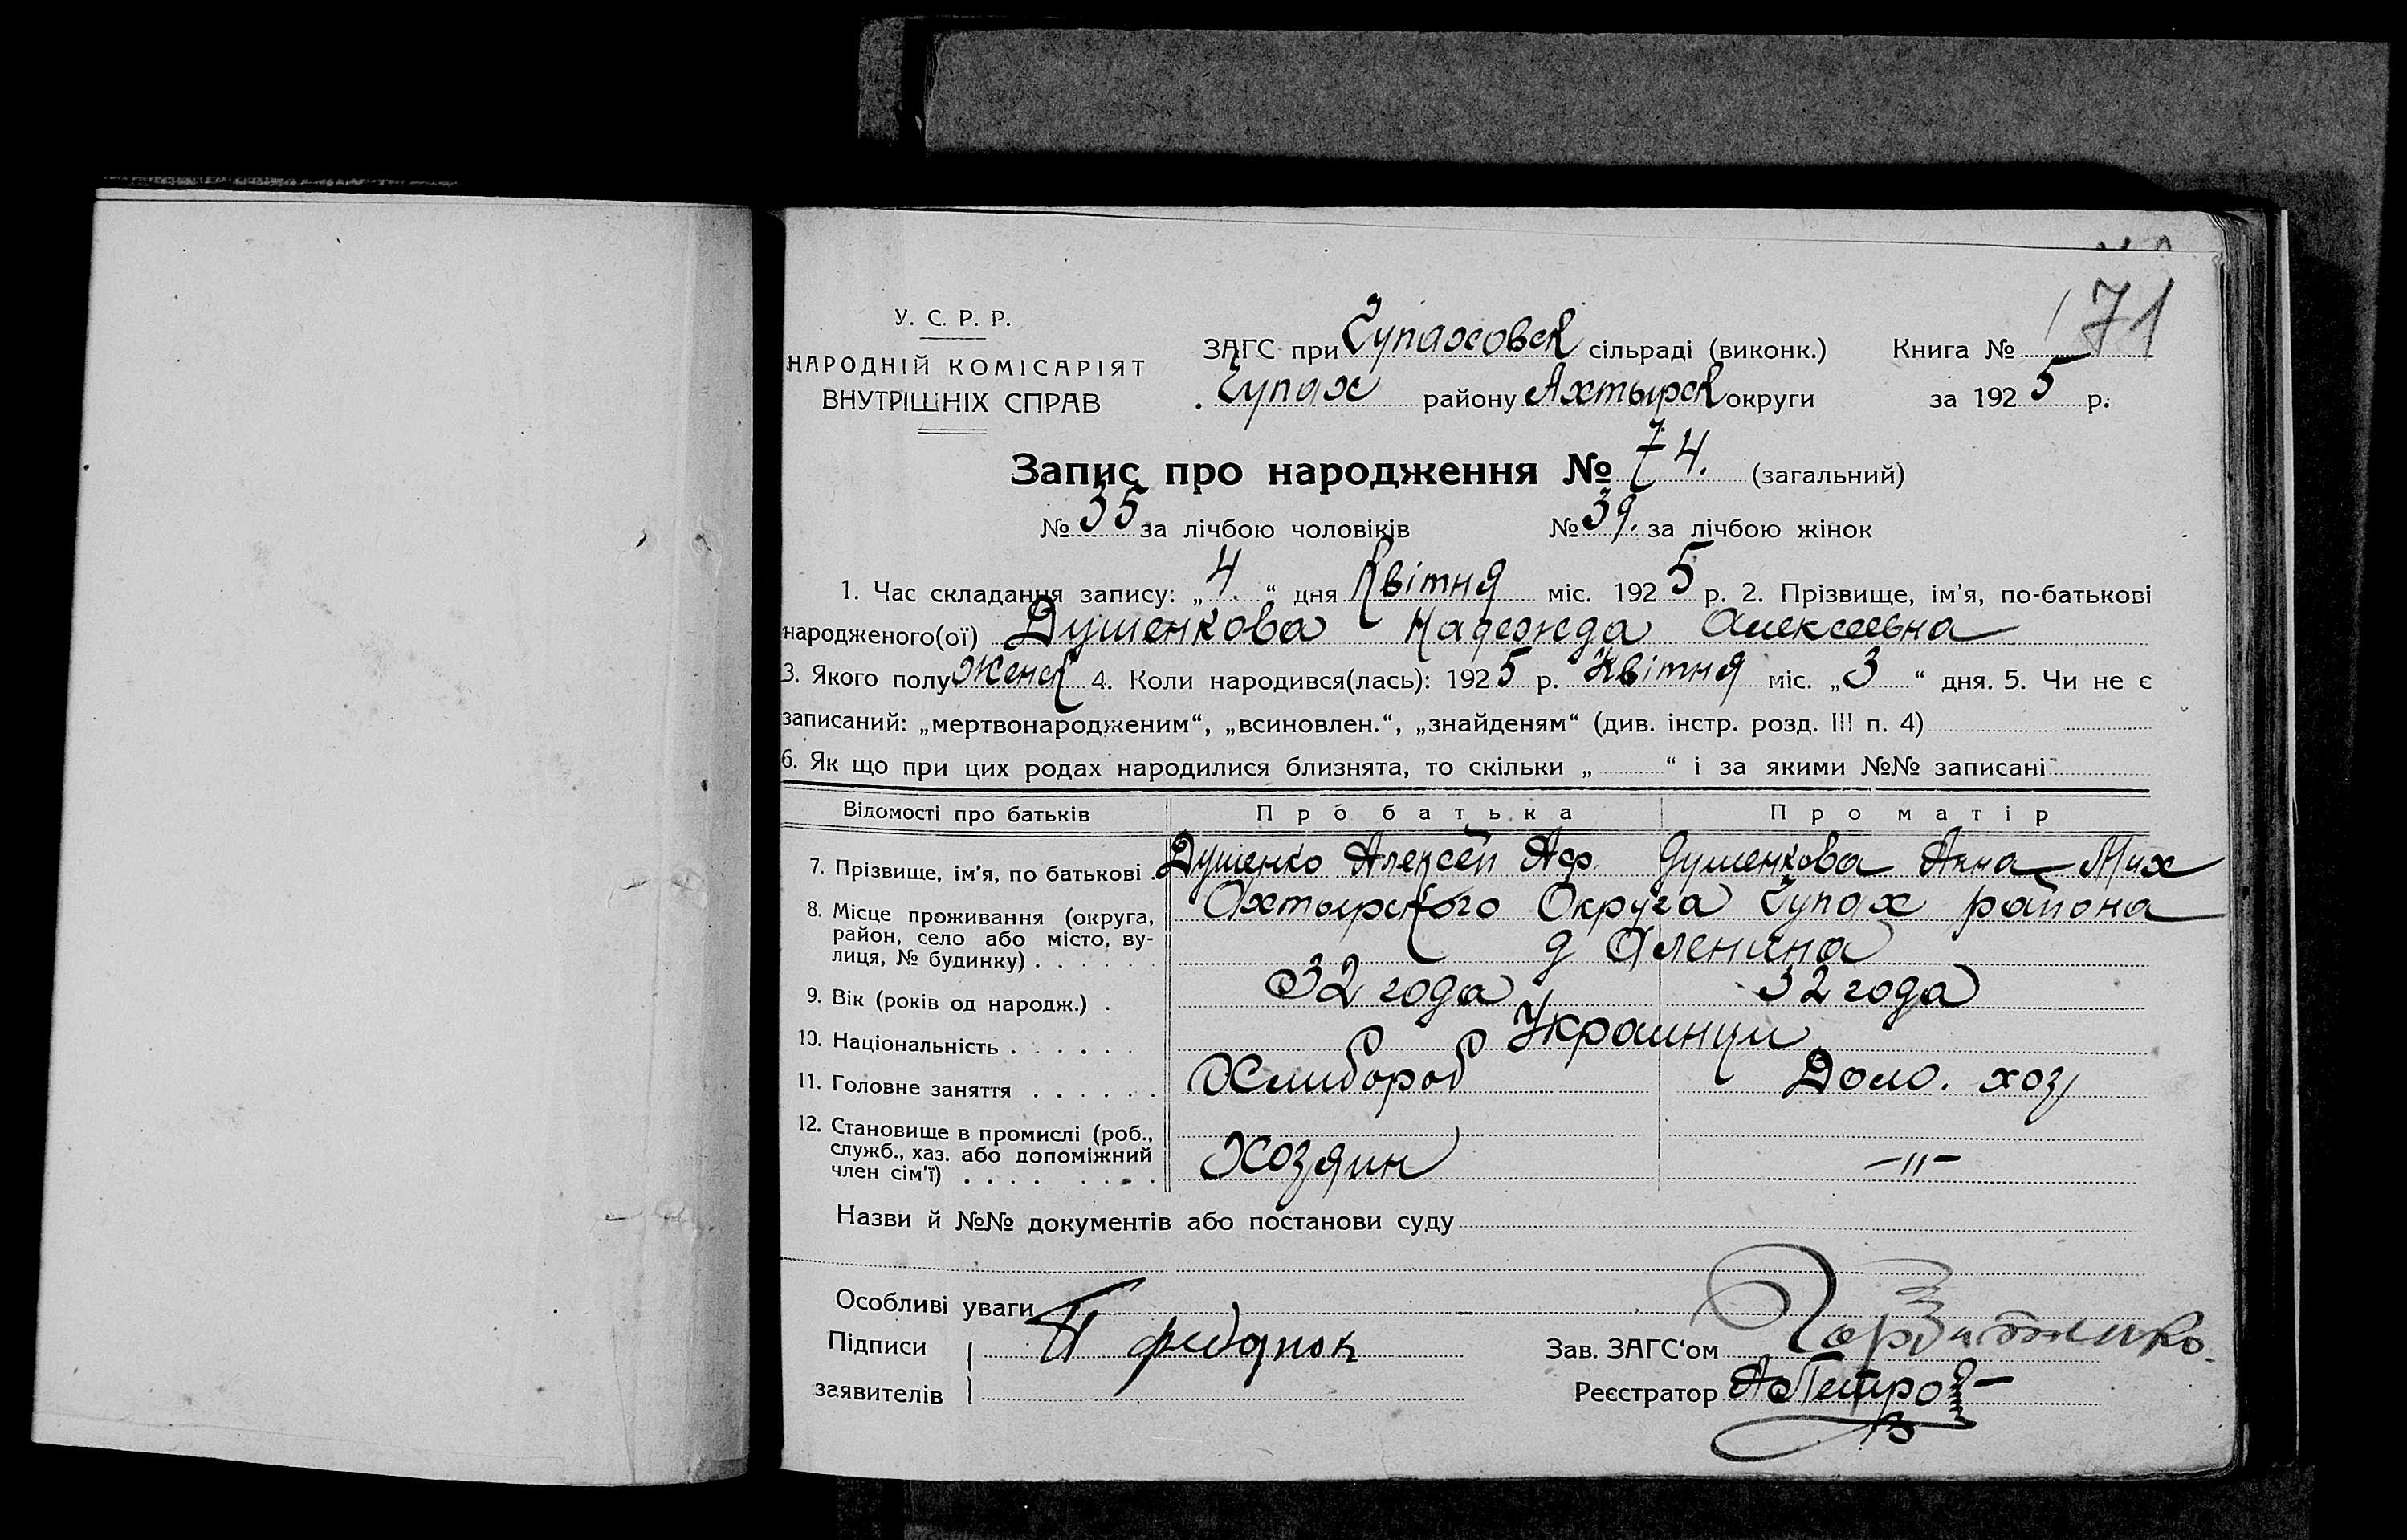 171
У. С. Р. Р.
НАРОДНІЙ КОМІСАРІЯТ
ВНУТРІШНІХ СПРАВ
ЗАГС при Чупаховск сільраді (виконк.) Книга №
Чупах району Ахтырск округи за 1925 р.
Запис про народження № 74. (загальний)
№ 35 за лічбою чоловіків № 39. за лічбою жінок
1. Час складання запису: „4.“ дня Квітня міс. 1925 р. 2. Прізвище, ім'я, по-батькові
народженого(ої) Душенкова Надежда Алексеевна
3. Якого полу Женск 4. Коли народився(лась): 1925 р. Квітня міс. „3“ дня. 5. Чи не є
записаний: „мертвонародженим“, „всиновлен.“, „знайденям“ (див. інстр. розд. III п. 4)
6. Як що при цих родах народилися близнята, то скільки „ “ і за якими №№ записані
Відомості про батьків Про батька Про матір
7. Прізвище, ім'я, по батькові . Душенко Алексей Аф. Душенкова Анна Мих
8. Місце проживання (округа, Охтырского Округа Чупах района
район, село або місто, ву-
лиця, № будинку) . . . . . д Оленина
9. Вік (років од народж.) . 32 года 32 года
10. Національність . . . . . . Украинци
11. Головне заняття . . . . . . Хлибороб Дом. хоз
12. Становище в промислі (роб.,
служб., хаз. або допоміжний
член сім'ї) . . . . . . . . Хозяин —"—
Назви й №№ документів або постанови суду
Особливі уваги
Підписи
Зав. ЗАГС'ом
заявителів
Реєстратор АПетров